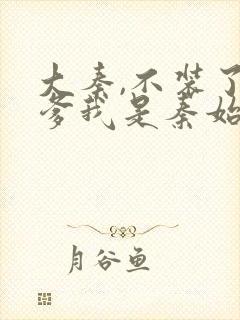 大秦,不装了
爹我是秦始
月谷鱼